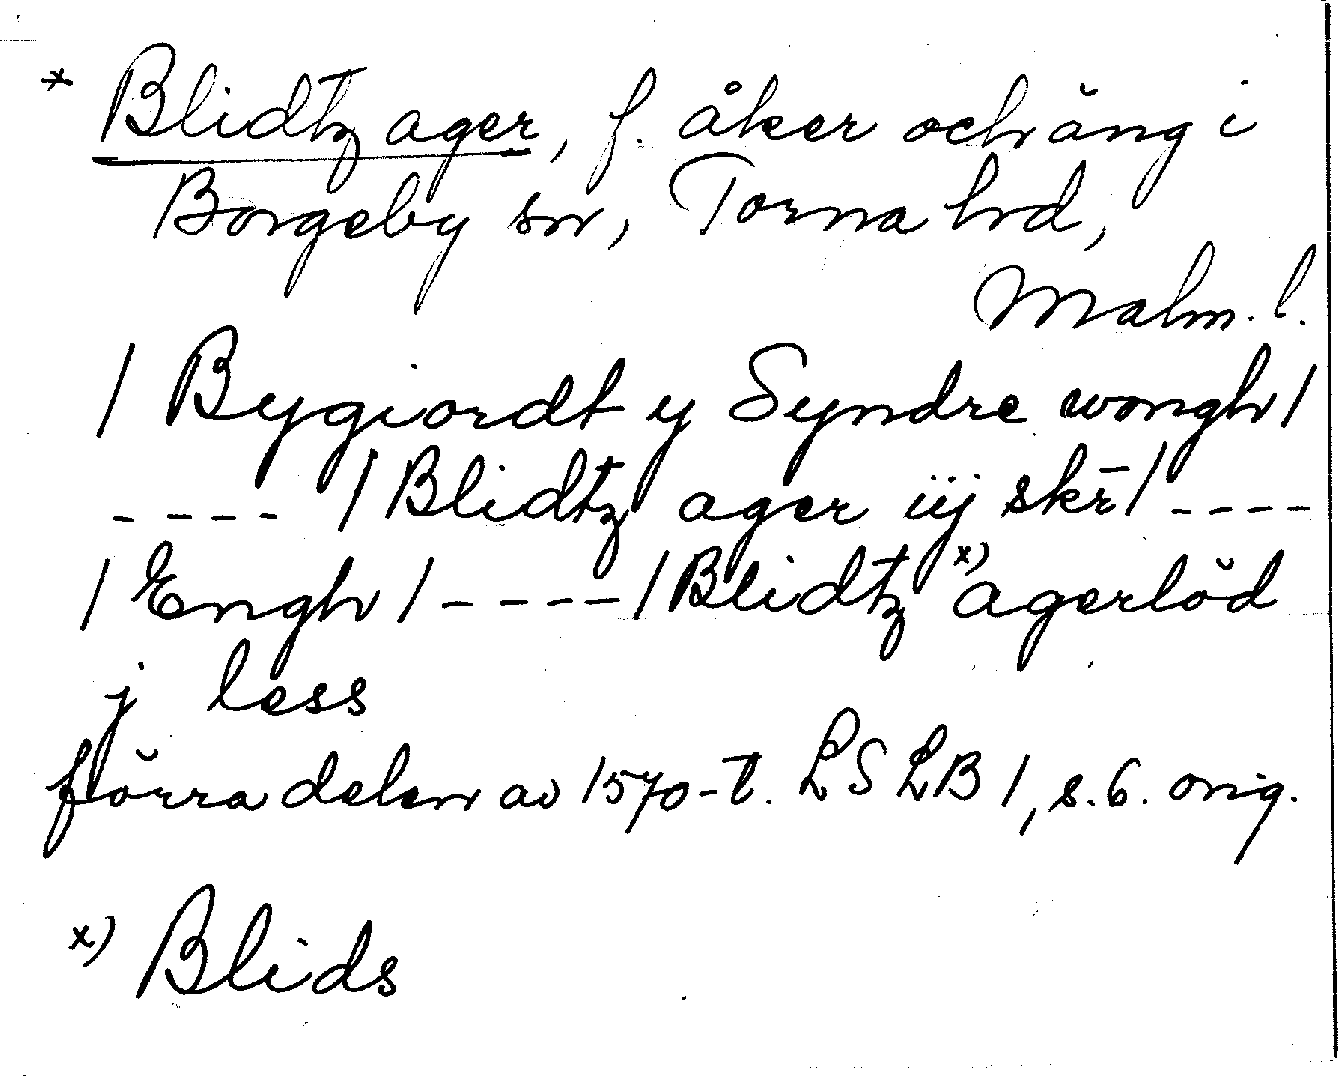 * Blidtz ager, f. åker och äng i
Borgeby sn, Torna hd,
Malm. l.
/ Bygiordt y Syndre wongh /
---- / Blidtz ager iij skr̄ / ----
/ Engh / ---- / Blidtz x) agerlöd
j less
förra delen av 1570-t. LSLB 1, s. 6. orig.
x) Blids